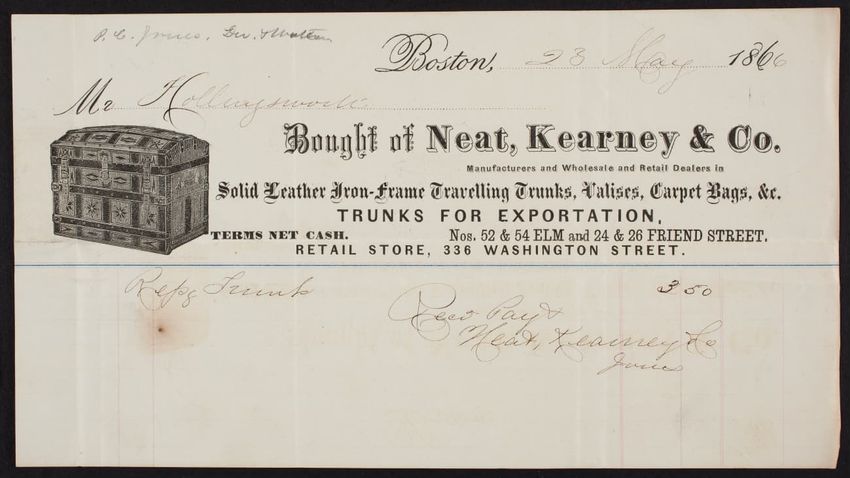 P. C. Jones.
Boston, 23 May 1866
Mr Hollingsworth
Bought of Neat, Kearney & Co.
Manufacturers and Wholesale and Retail Dealers in
Solid Leather Iron-Frame Travelling Trunks, Valises, Carpet Bags, &c.
TRUNKS FOR EXPORTATION,
TERMS NET CASH. Nos. 52 & 54 ELM and 24 & 26 FRIEND STREET.
RETAIL STORE, 336 WASHINGTON STREET.
Repg Trunk 3 50
Recd Payt
Neat, Kearney & Co
Jones